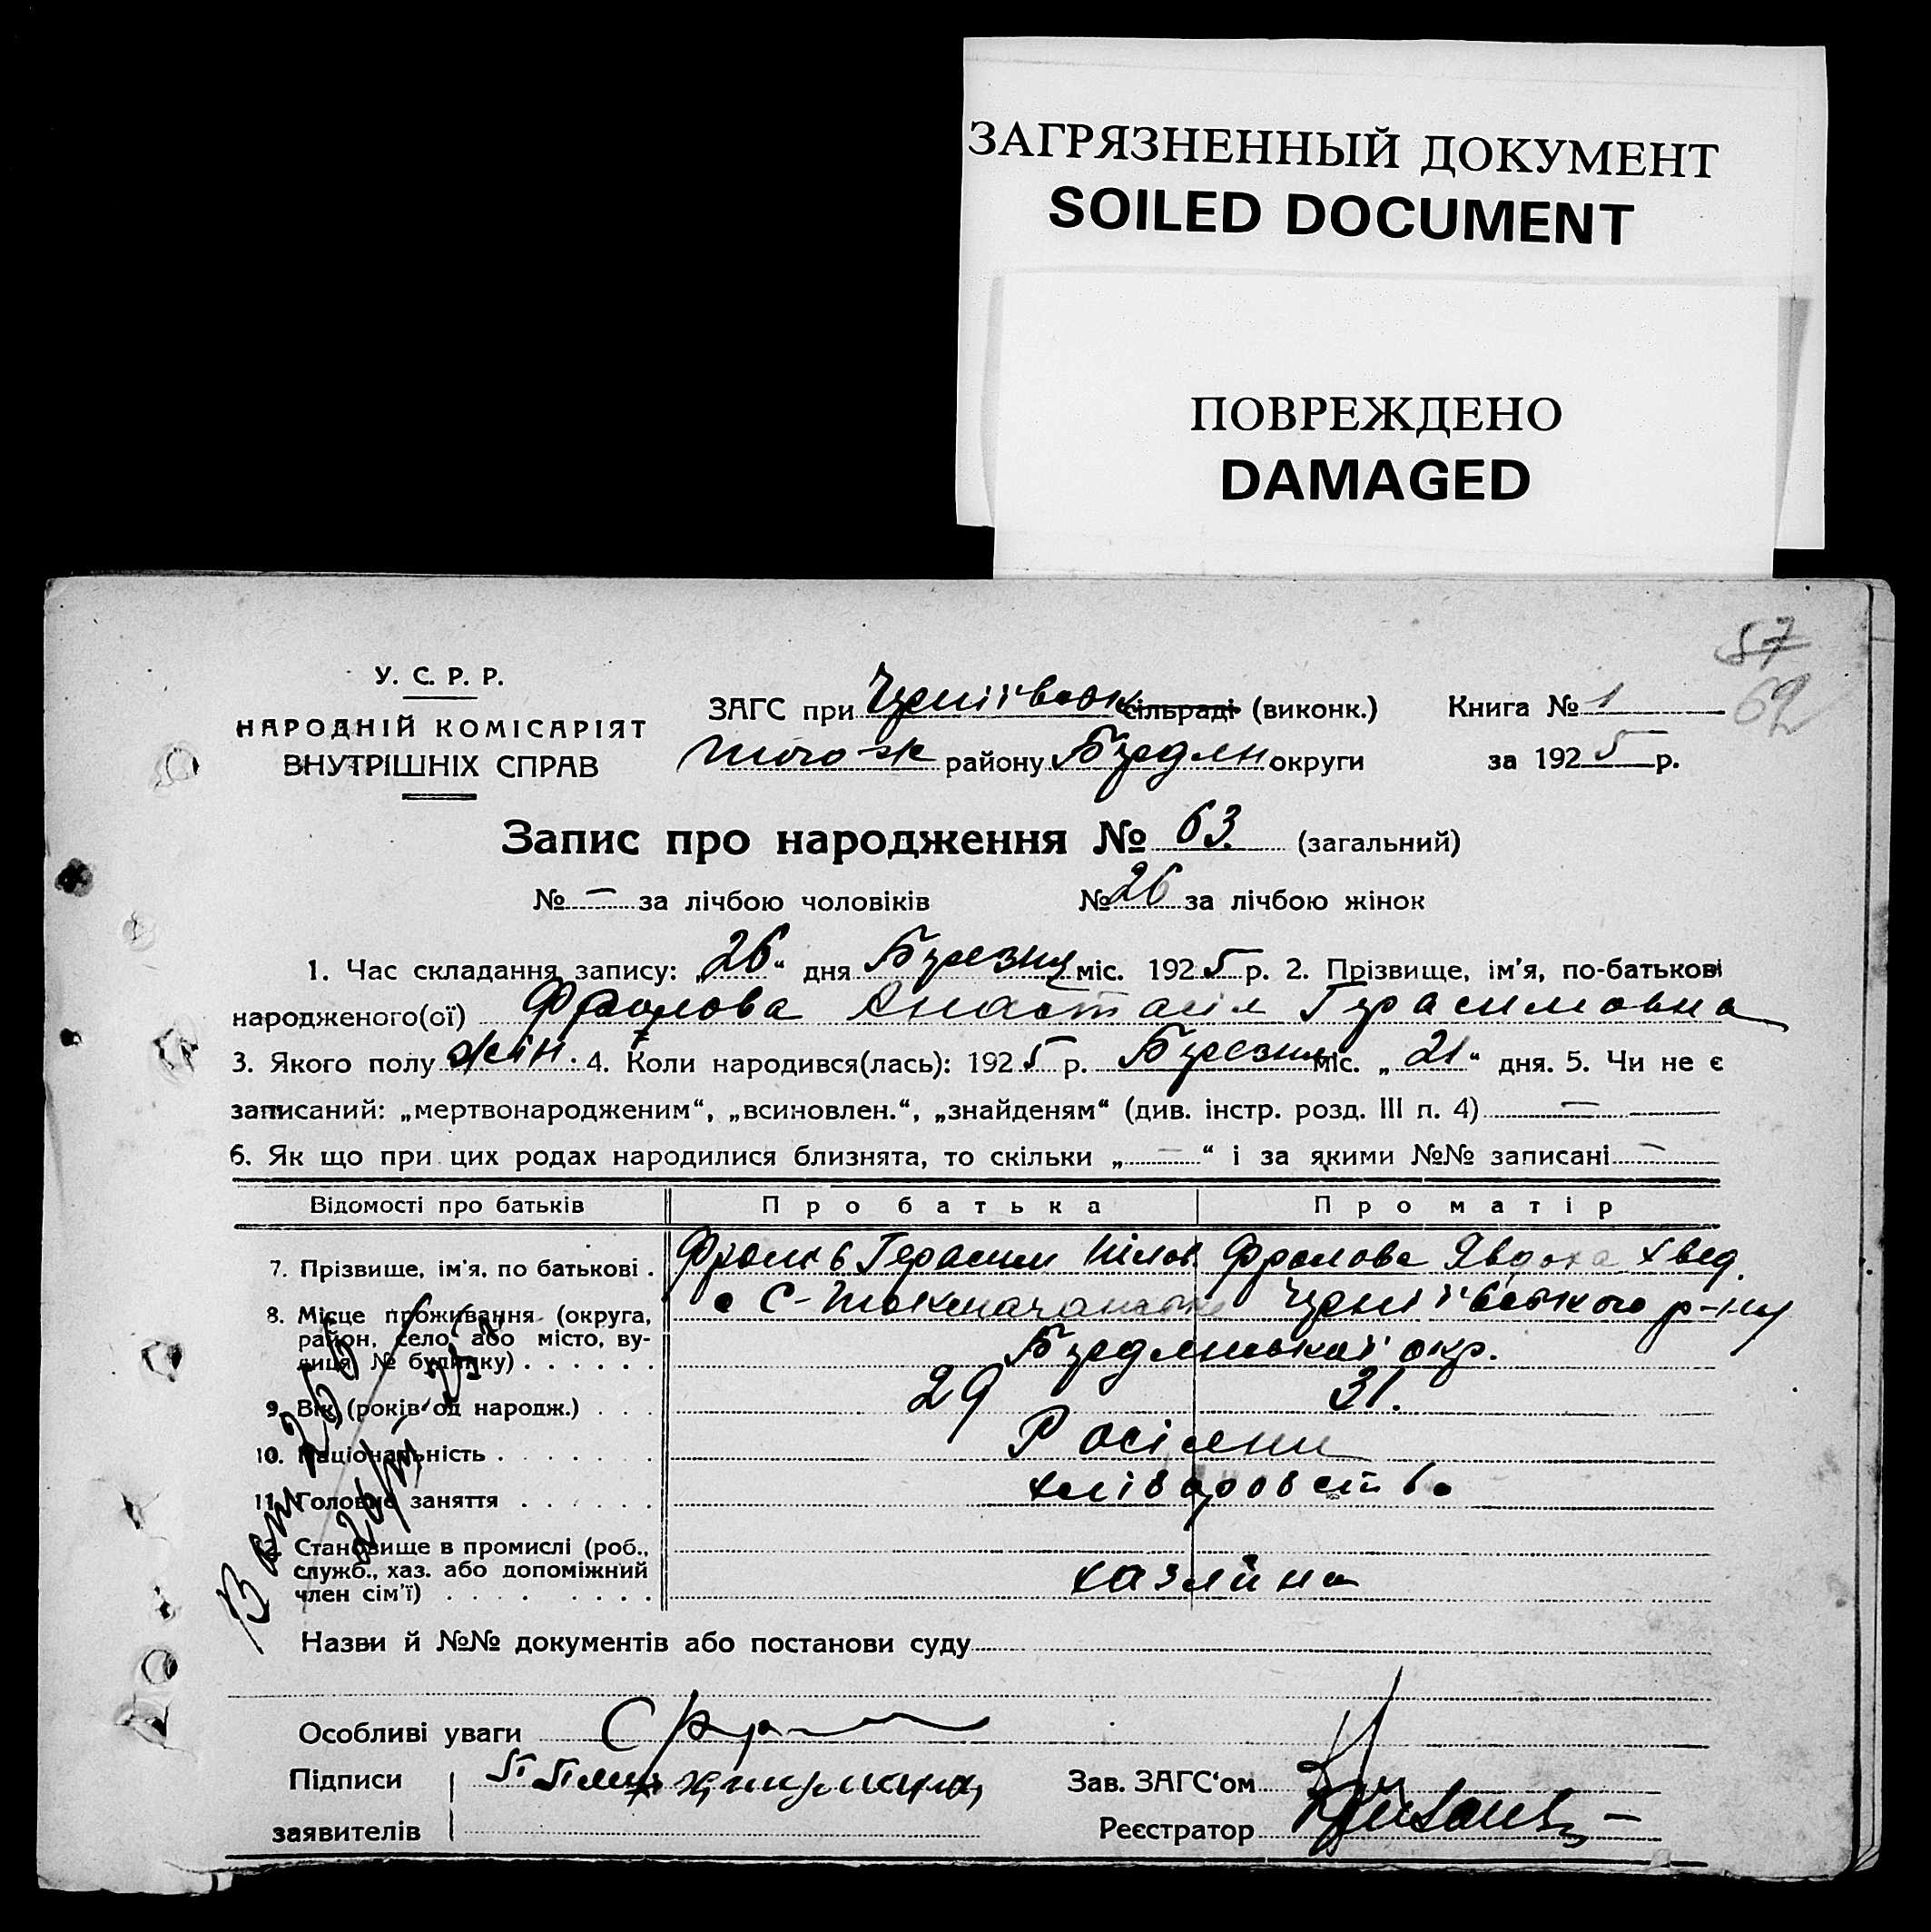 ЗАГРЯЗНЕННЫЙ ДОКУМЕНТ
SOILED DOCUMENT
ПОВРЕЖДЕНО
DAMAGED
57
62
У. С. Р. Р.
НАРОДНІЙ КОМІСАРІЯТ
ВНУТРІШНІХ СПРАВ
ЗАГС при сільраді (виконк.) Книга № 1
того-ж району Бердян округи за 1925 р.
Запис про народження № 63. (загальний)
№ — за лічбою чоловіків № 26 за лічбою жінок
1. Час складання запису: „26“ дня Березня міс. 1925 р. 2. Прізвище, ім'я, по-батькові
народженого(ої) Фролова Анастасія Герасимовна
3. Якого полу жін. 4. Коли народився(лась): 1925 р. Березня міс. „21“ дня. 5. Чи не є
записаний: „мертвонародженим“, „всиновлен.“, „знайденям“ (див. інстр. розд. III п. 4) —
6. Як що при цих родах народилися близнята, то скільки „—“ і за якими №№ записані —
Відомості про батьків Про батька Про матір
7. Прізвище, ім'я, по батькові . Фролов Герасим Фролова Явдоха Хвед.
8. Місце проживання (округа, район, село або місто, вулиця, № будинку) . . . . . . р-ну
Бердянської окр.
9. Вік (років од народж.) . . . 29 31.
10. Національність . . . . . . . Росіяни
11. Головне заняття . . . . . . хліборобство
12. Становище в промислі (роб., служб., хаз. або допоміжний член сім'ї) . . . . . . . . хазяїна
Назви й №№ документів або постанови суду
Особливі уваги
Підписи Зав. ЗАГС‘ом
заявителів Реєстратор